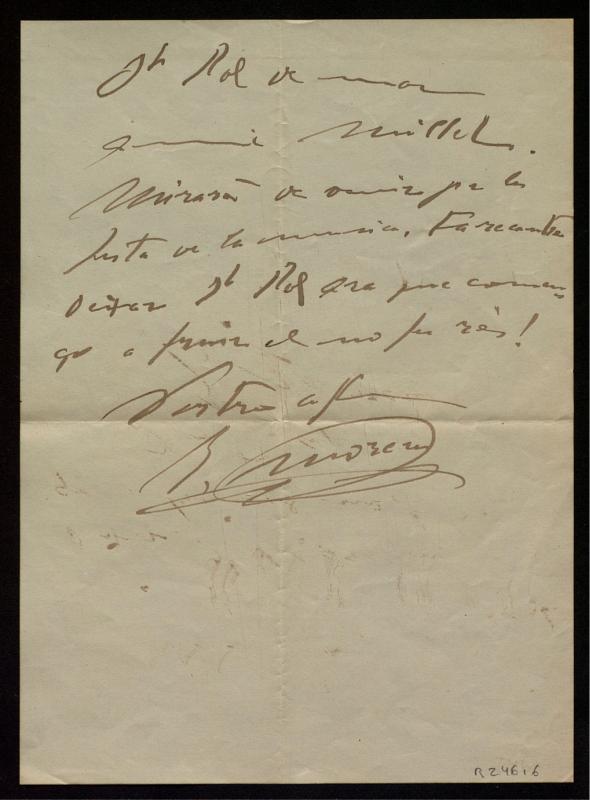 St Pol de mar
amic Millet.
Miraré de venir per la
festa de la musica. Fa recansa
deixar St Pol ara que comen
ço a fruir el no fer rès!
Vostre affm
E. Morera
R 246 i 6